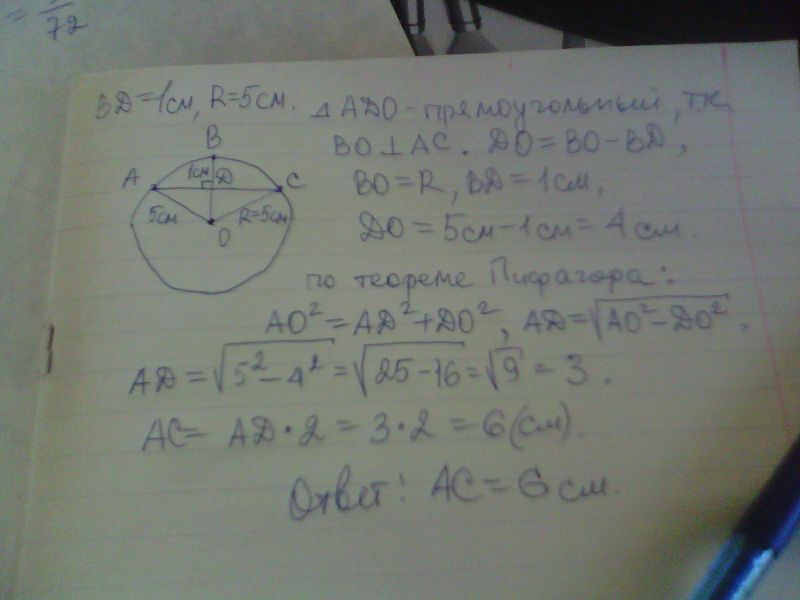 = 72
BD=1см, R=5см. △ADO-прямоугольный, т.к.
BO⊥AC. DO=BO-BD,
BO=R, BD=1см,
DO=5см-1см=4см.
B
A 1см D C
5см R=5см
O
по теореме Пифагора:
AO²=AD²+DO², AD=√AO²-DO²,
AD=√5²-4²=√25-16=√9=3.
AC= AD·2=3·2=6(см).
Ответ: AC=6см.